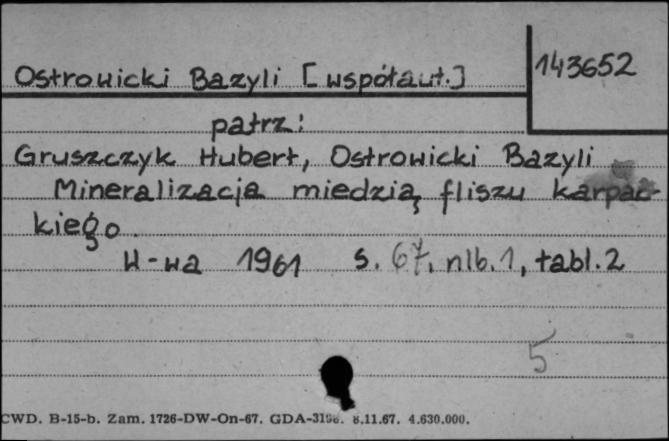 Ostrowicki Bazyli [współaut.]
143652
patrz:
Gruszczyk Hubert, Ostrowicki Bazyli
Mineralizacja miedzią fliszu karpac-
kiego.
W-wa 1961 s. 67, nlb. 1, tabl. 2
5
CWD. B-15-b. Zam. 1726-DW-On-67. GDA-3196. 8.11.67. 4.630.000.